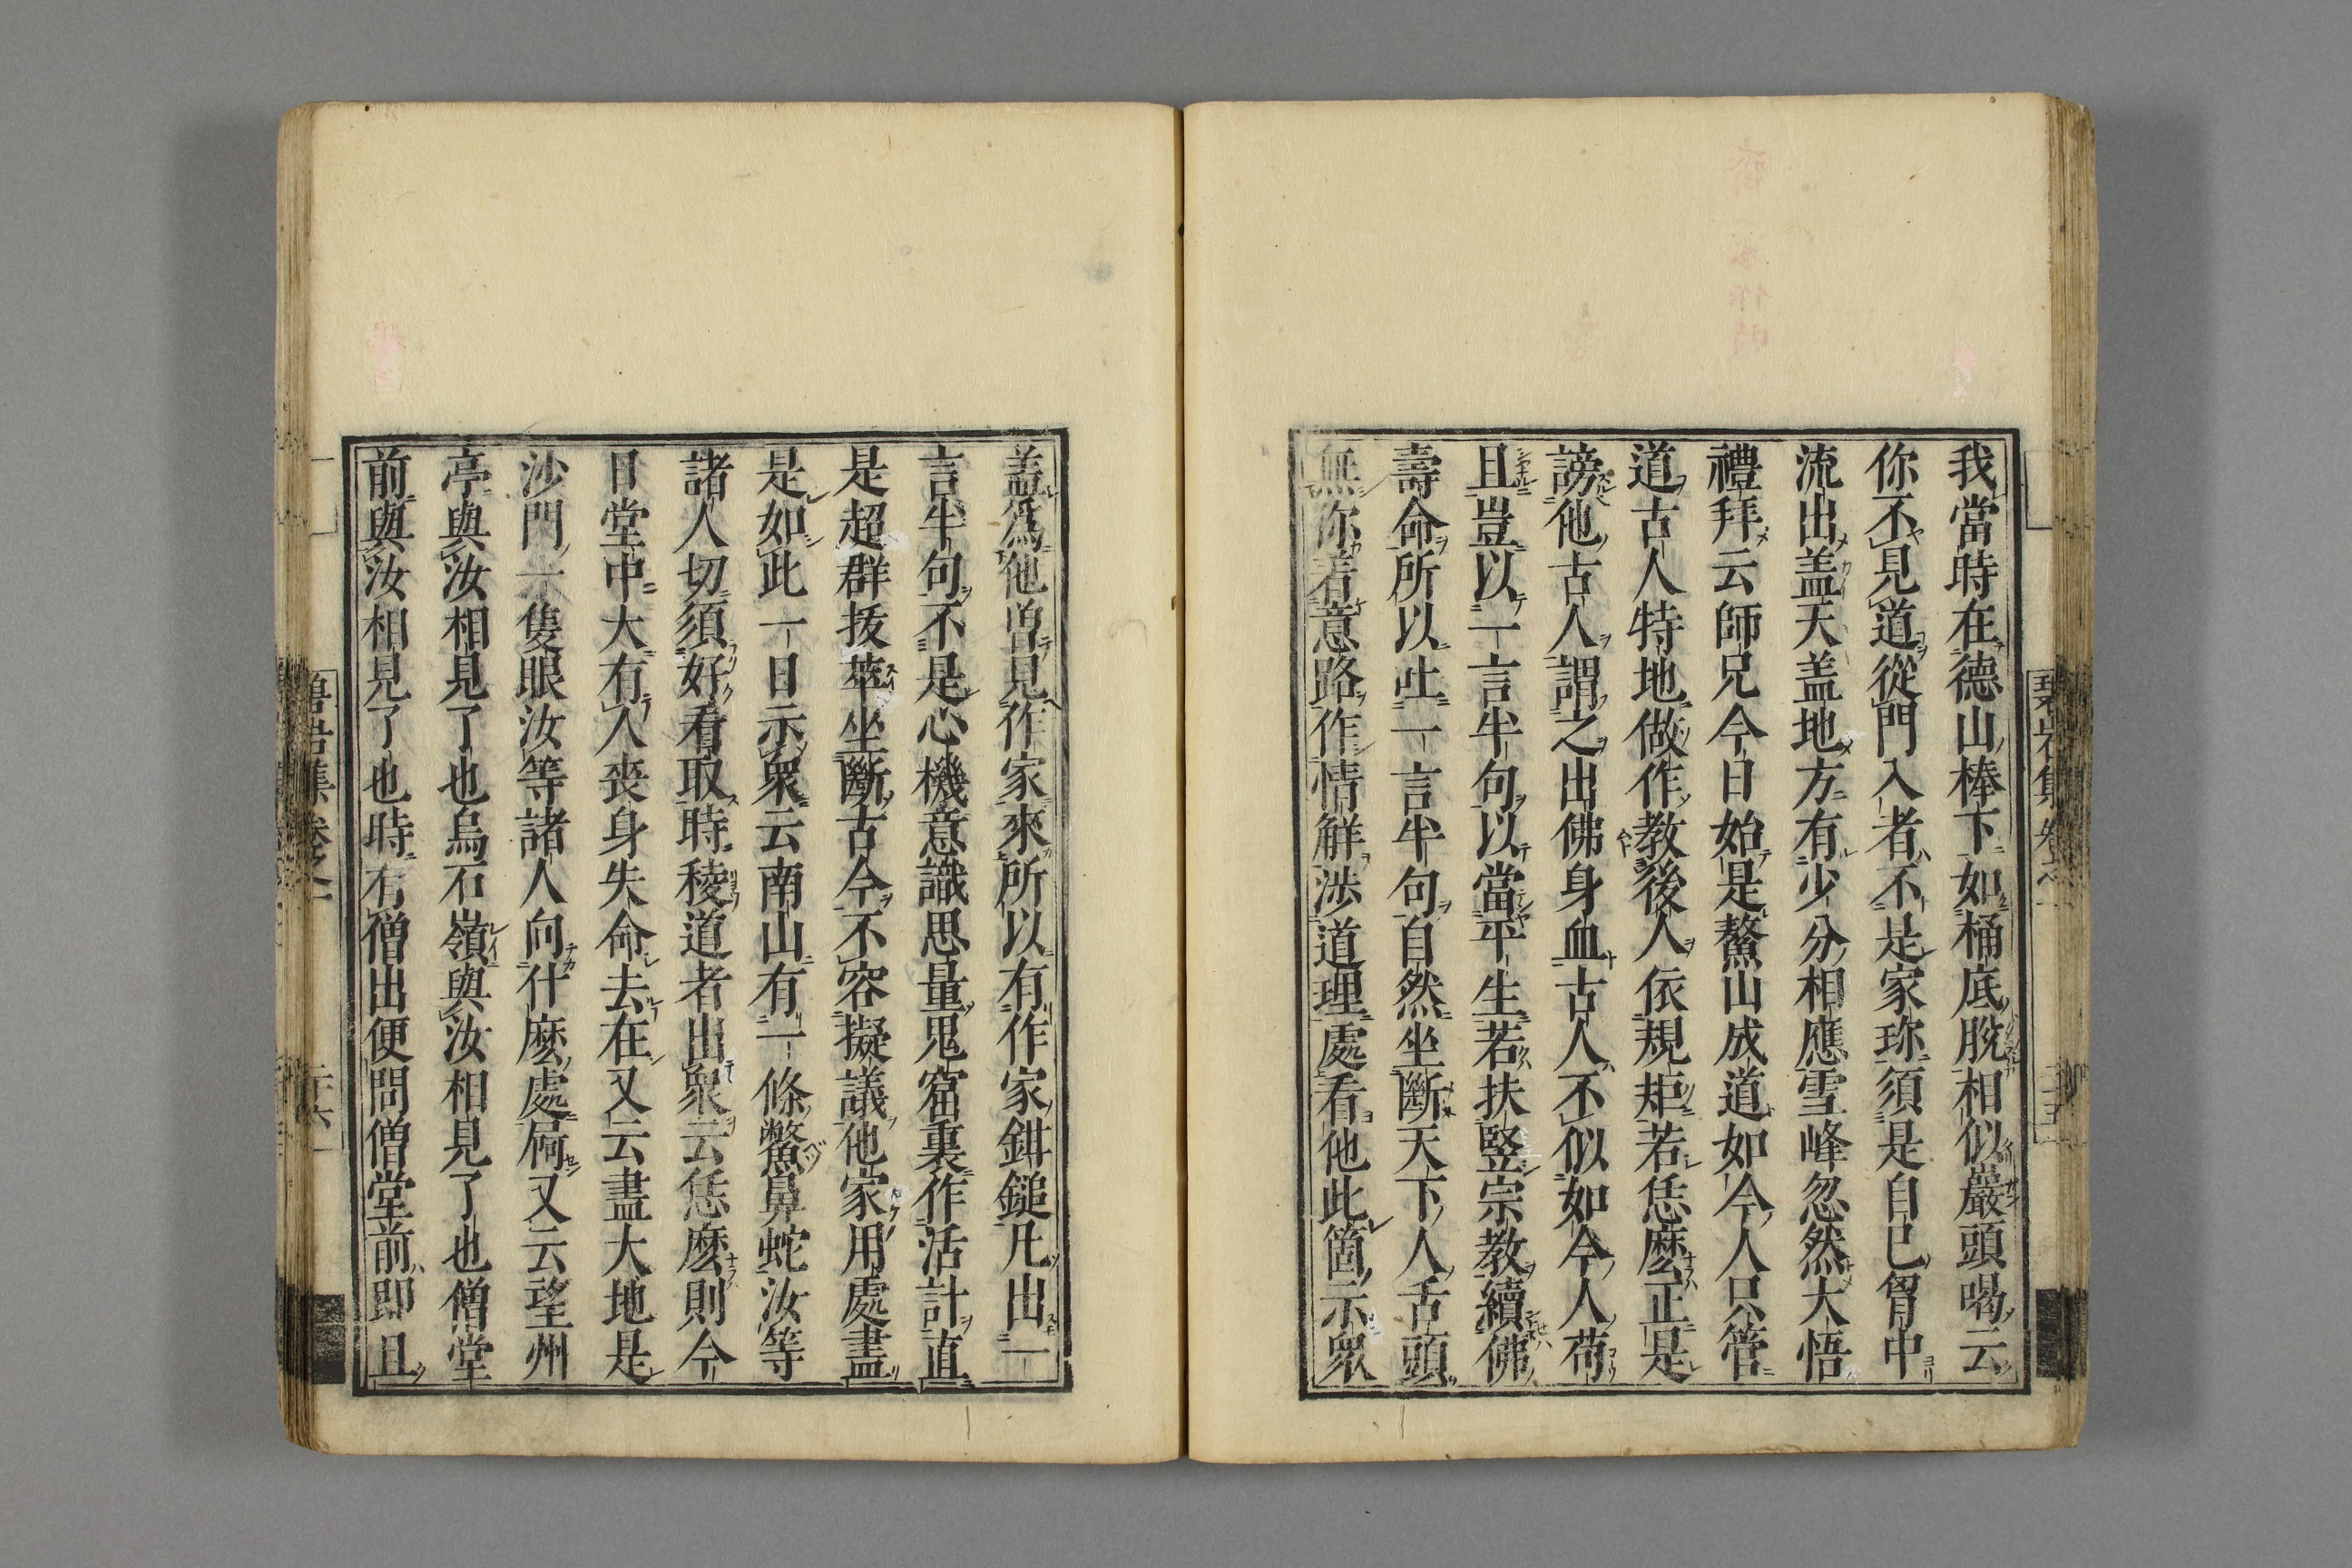 我當時在德山棒下如桶底脫相似巖頭喝云
你不見道從門入者不是家珎須是自己胷中
流出盖天盖地方有少分相應雪峰忽然大悟
禮拜云師兄今日始是鰲山成道如今人只管
道古人特地做作教後人依規矩若恁麼正是
謗他古人謂之出佛身血古人不似如今人苟
且豈以一言半句以當平生若扶竪宗教續佛
壽命所以吐一言半句自然坐斷天下人舌頭
無你着意路作情解涉道理處看他此箇示衆
盖爲他曽見作家來所以有作家鉗鎚凡出一
言半句不是心機意識思量鬼窟裏作活計直
是超群拔萃坐斷古今不容擬議他家用處盡
是如此一日示衆云南山有一條鱉鼻蛇汝等
諸人切須好看取時稜道者出衆云恁麼則今
日堂中大有人喪身失命去在又云盡大地是
沙門一隻眼汝等諸人向什麼處屙又云望州
亭與汝相見了也烏石嶺與汝相見了也僧堂
前與汝相見了也時有僧出便問僧堂前即且